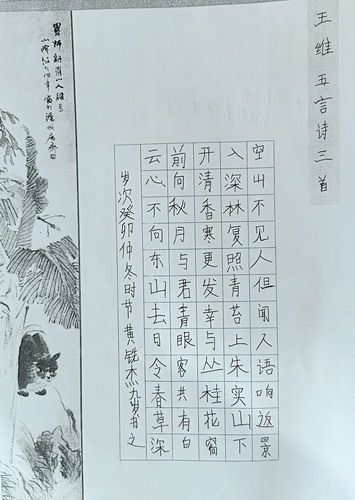 王维五言诗三首
空山不见人但闻人语响返景
入深林复照青苔上朱实山下
开清香寒更发幸与丛桂花窗
前向秋月与君青眼客共有白
云心不向东山去日令春草深
岁次癸卯仲冬时节黄铣杰九岁书之